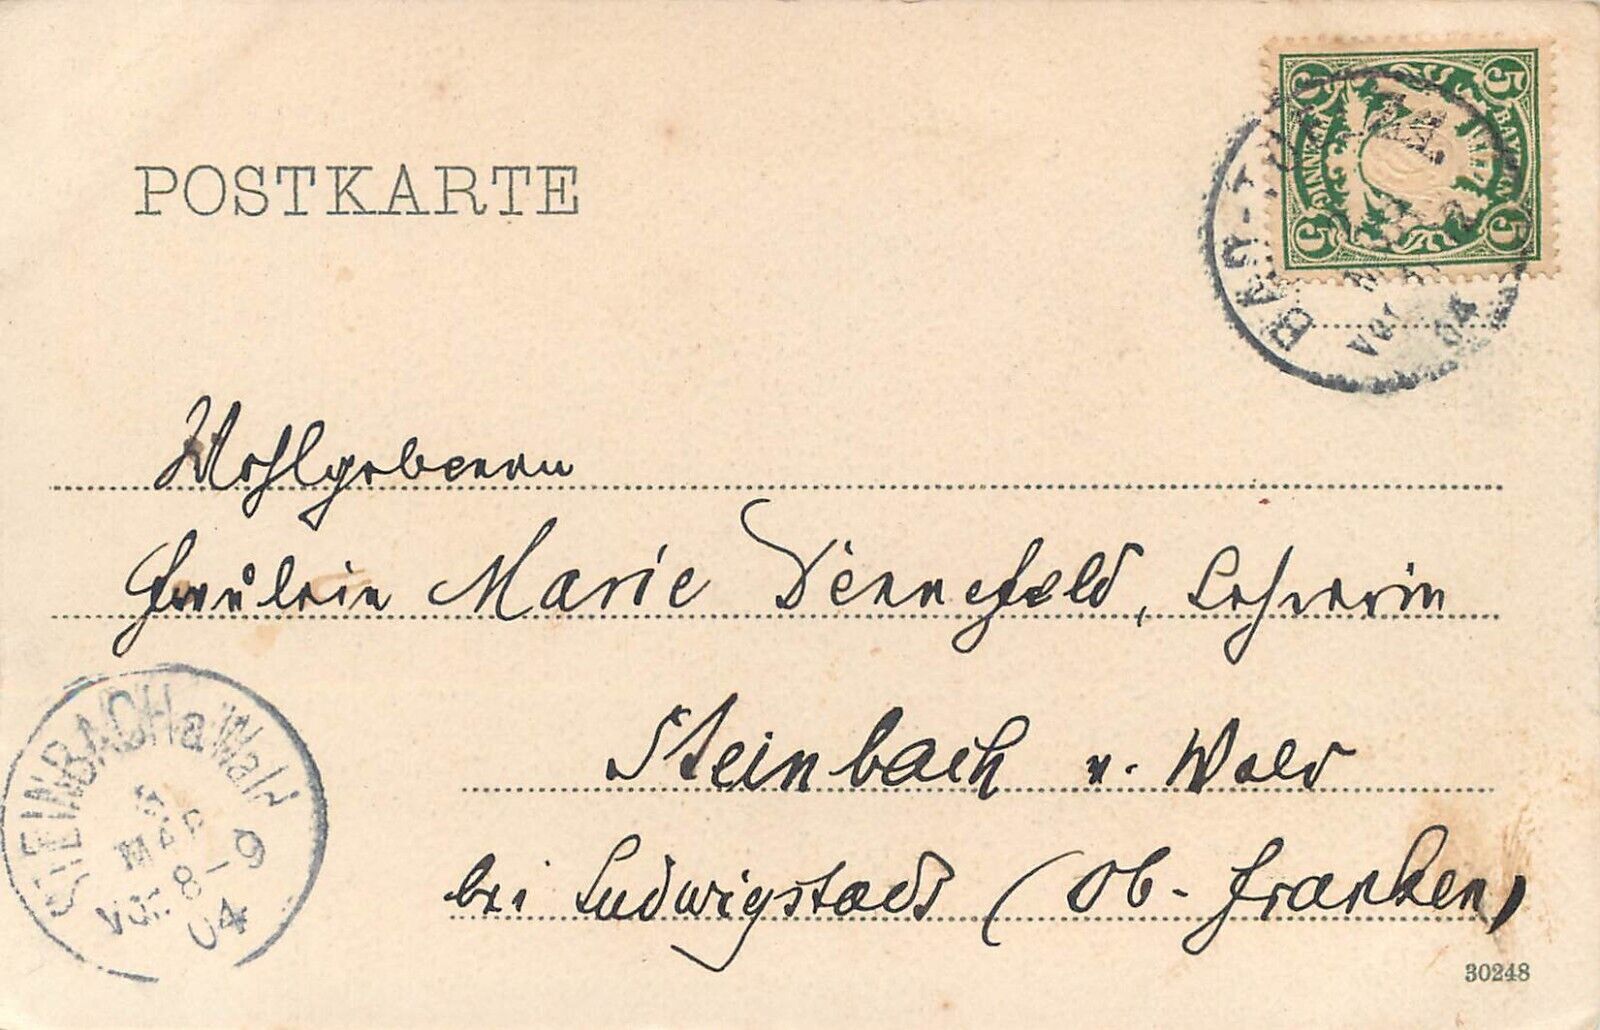 POSTKARTE
5 5
BAYERN
PFENNIG
5 5
BAD-TÖLZ
MRZ
Vor.
04
Wohlgeboren
Fräulein Marie Dennefeld, Lehrerin
Steinbach a. Wald
bei Ludwigstadt (Ob-Franken)
STEINBACH a Wald
MAR
Vor. 8-9
04
30248